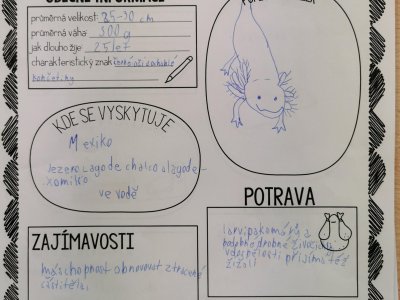 OBECNÉ INFORMACE
průměrná velikost: 25-30 cm
průměrná váha: 300 g
jak dlouho žije: 25 let
charakteristický znak:
končetiny
KDE SE VYSKYTUJE
Mexiko
Jezero Lago de chalco a lago de
xomilko
ve vodě
POTRAVA
larvi pakomárů a
podobné drobné živočichy
v dospělosti přijímá též
žížoli
ZAJÍMAVOSTI
má schopnost obnovovat ztracené
části těla